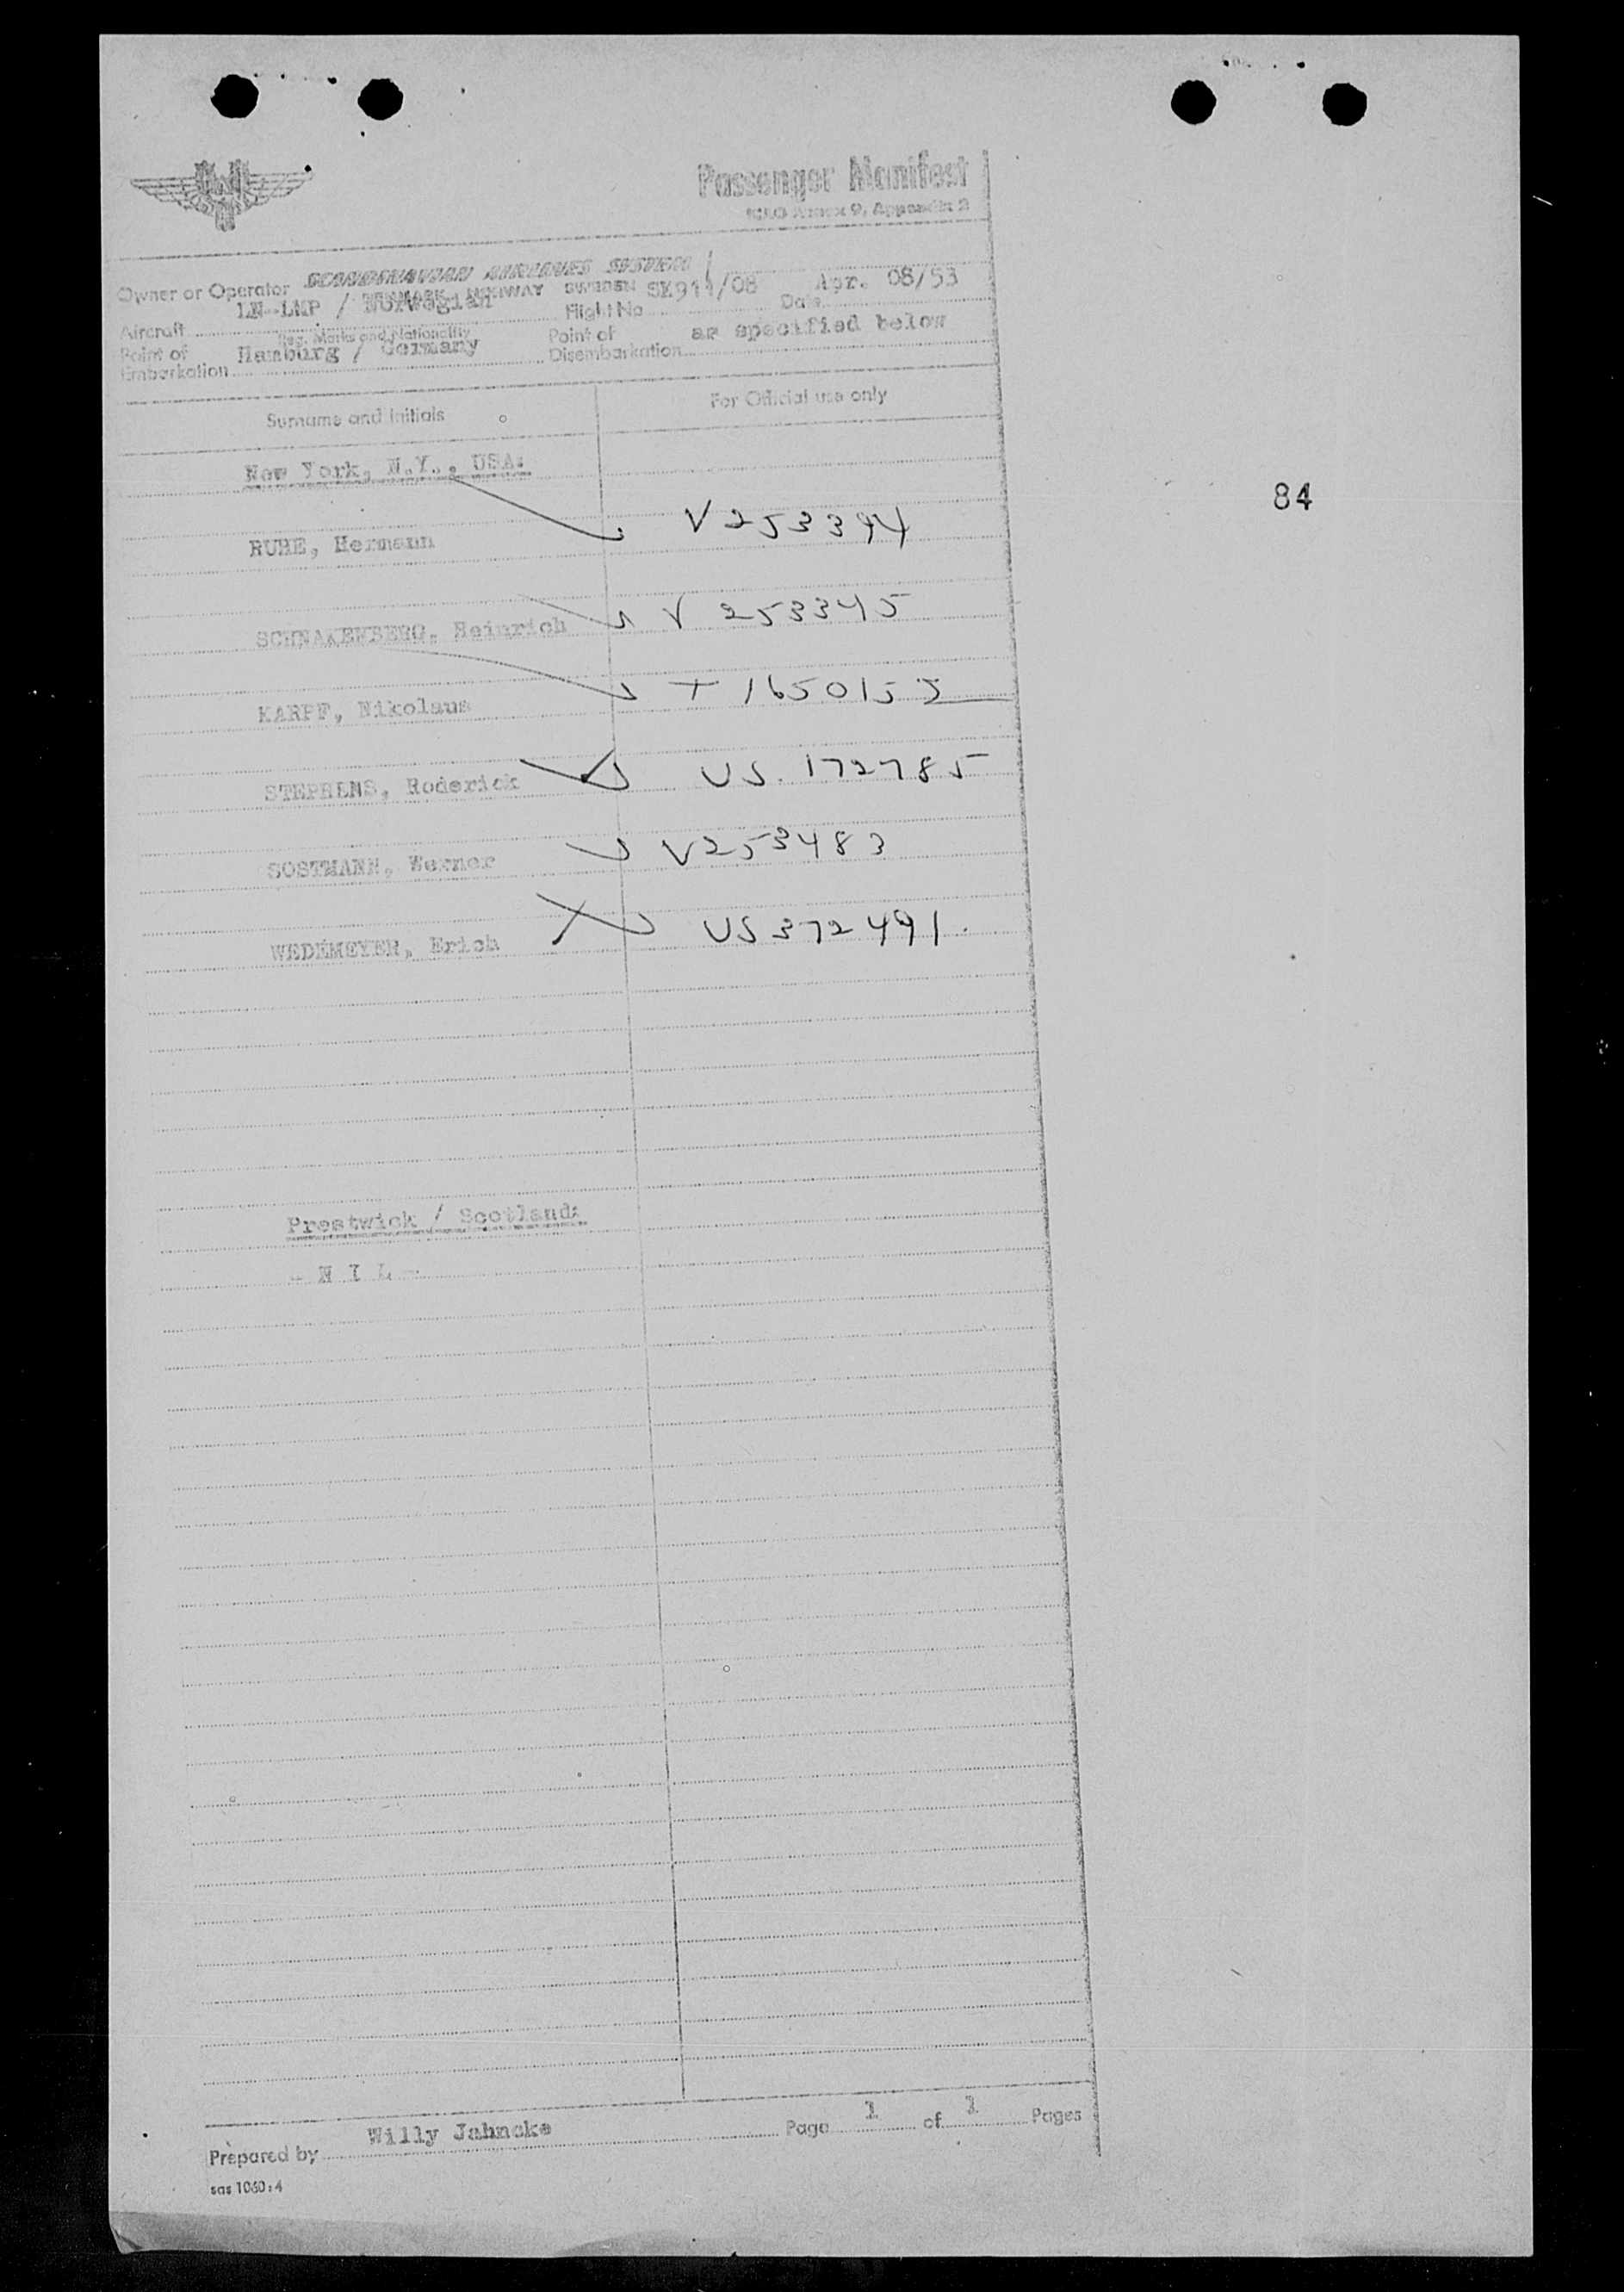 Passenger Manifest
ICAO Annex 9, Appendix 3
Owner or Operator SCANDINAVIAN AIRLINES SYSTEM
DENMARK NORWAY SWEDEN
Aircraft LN-LMP / Norwegian Flight No SK911/08 Date Apr. 08/53
Reg. Marks and Nationality
Point of Embarkation Hamburg / Germany Point of Disembarkation as specified below
Surname and initials For Official use only
New York, N.Y., USA:
84
RUHE, Hermann V253394
SCHNAKENBERG, Heinrich V 253345
KARPF, Nikolaus 1650155
STEPHENS, Roderick US. 172785
SOSTMANN, Werner V253483
WEDEMEYER, Erich US372491.
Prestwick / Scotland:
- N I L -
Prepared by Willy Jahncke Page 1 of 1 Pages
sas 1060:4